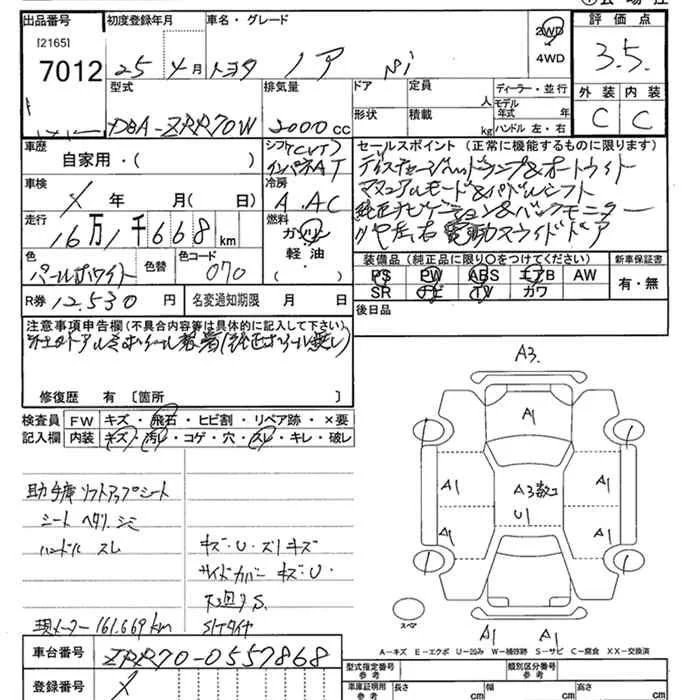 出品番号
初度登録年月
車名・グレード
評価点
[2165]
7012
25年4月
トヨタ ノア Si
2WD
4WD
3.5.
外装 内装
C C
型式
DBA-ZRR70W
排気量
2000cc
ドア
形状
定員
人
積載
kg
ディーラー・並行
モデル年式 年
ハンドル 左・右
車歴
自家用・( )
シフト CVT
インパネAT
セールスポイント (正常に機能するものに限ります)
ディスチャージヘッドランプ&オートライト
マニュアルモード&パドルシフト
純正ナビゲーション&バックモニター
リヤ左右電動スライドドア
車検
X 年 月( 日)
冷房
A.AC
走行
16万1千668km
燃料
ガソリン
軽油
・( )
色
パールホワイト
色替
色コード
070
装備品 (純正品に限り○をつけてください)
PS PW ABS エアB AW
SR ナビ TV カワ
新車保証書
有・無
R券 12.530円
名変通知期限 月 日
後日品
注意事項申告欄(不具合内容等は具体的に記入して下さい)
社外アルミホイール装着(純正ホイール無し)
修復歴 有 [箇所 ]
検査員記入欄
FW キズ・飛石・ヒビ割・リペア跡・×要
内装 キズ・汚レ・コゲ・穴・スレ・キレ・破レ
助手席リフトアップシート
シート ヘタリ.シミ
ハンドル スレ
キズ・U・ズリキズ
サイドカバー キズ・U・
下廻りS.
現メーター 161.669km
STタイヤ
A3.
A1
A1 A3数コ A1
U1
A1 A1
スペア
A1 A1
A-キズ E-エクボ U-凹み W-補修跡 S-サビ C-腐食 XX-交換済
車台番号
ZRR70-0557868
登録番号
X
型式指定番号
参考
類別区分番号
参考
車庫証明用
参考
長さ cm
幅 cm
高さ cm